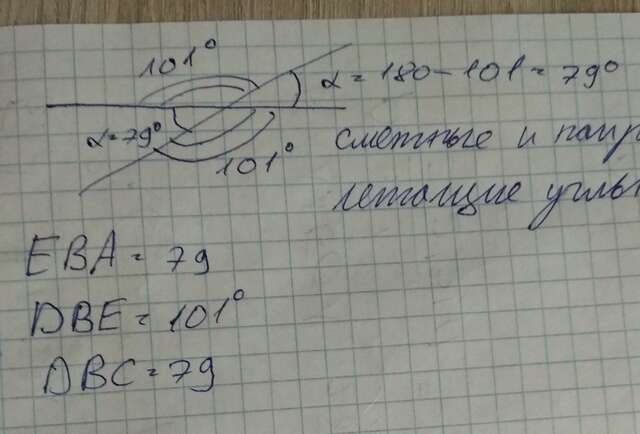 101°
α = 180 - 101 = 79°
α = 79°
101°
смежные и
углы
EBA = 79
DBE = 101°
DBC = 79